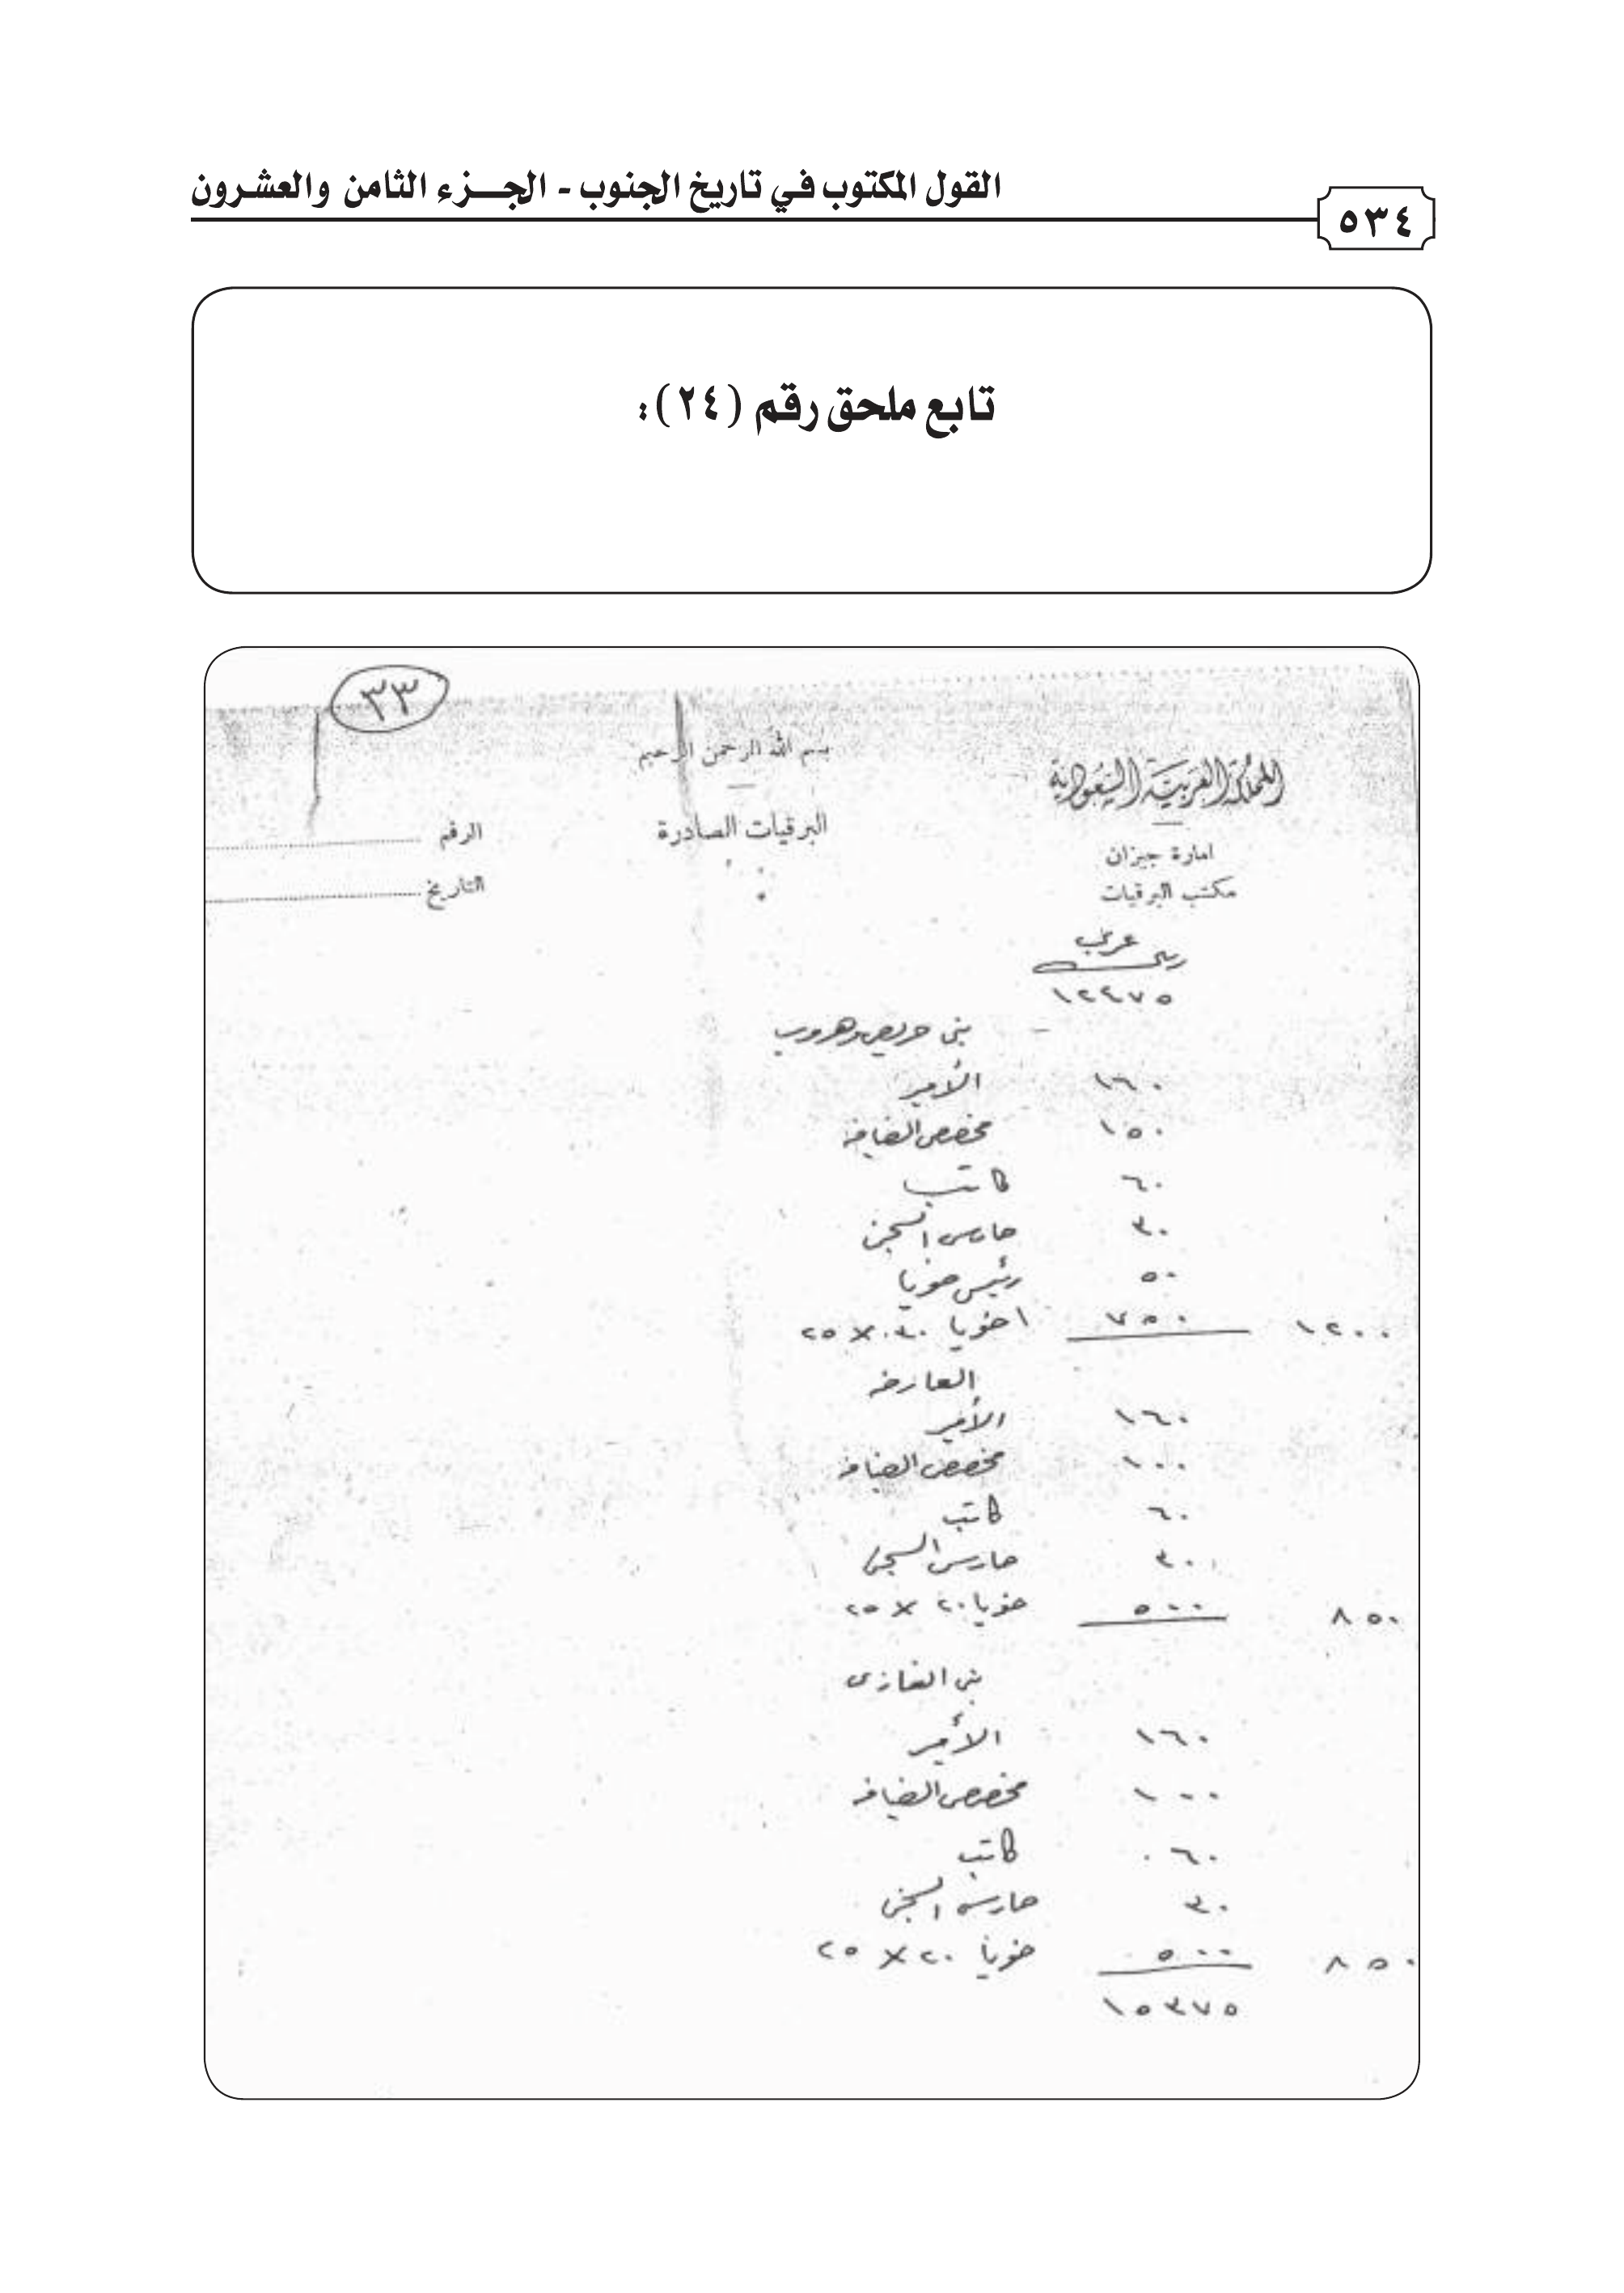 القول المكتوب في تاريخ الجنوب - الجزء الثامن والعشرون
٥٣٤
تابع ملحق رقم (٢٤):
٣٣
بسم الله الرحمن الرحيم
المملكة العربية السعودية
البرقيات الصادرة
الرقم
امارة جيزان
التاريخ
مكتب البرقيات
عربي
١٢٤٧٥
بني حريص وهروب
١٦٠ الأمير
١٥٠ مخصص الضيافه
٦٠ كاتب
٣٠ حارس السجن
٥٠ رئيس خويا
١٢٠٠ ٧٥٠ اخويا ٣٠ × ٢٥
العارضه
١٦٠ الأمير
١٠٠ مخصص الضيافه
٦٠ كاتب
٣٠ حارس السجن
٨٥٠ ٥٠٠ خويا ٢٠ × ٢٥
بني الغازى
١٦٠ الأمير
١٠٠ مخصص الضيافه
٦٠ كاتب
٣٠ حارس السجن
٨٥٠ ٥٠٠ خويا ٢٠ × ٢٥
١٥٣٧٥